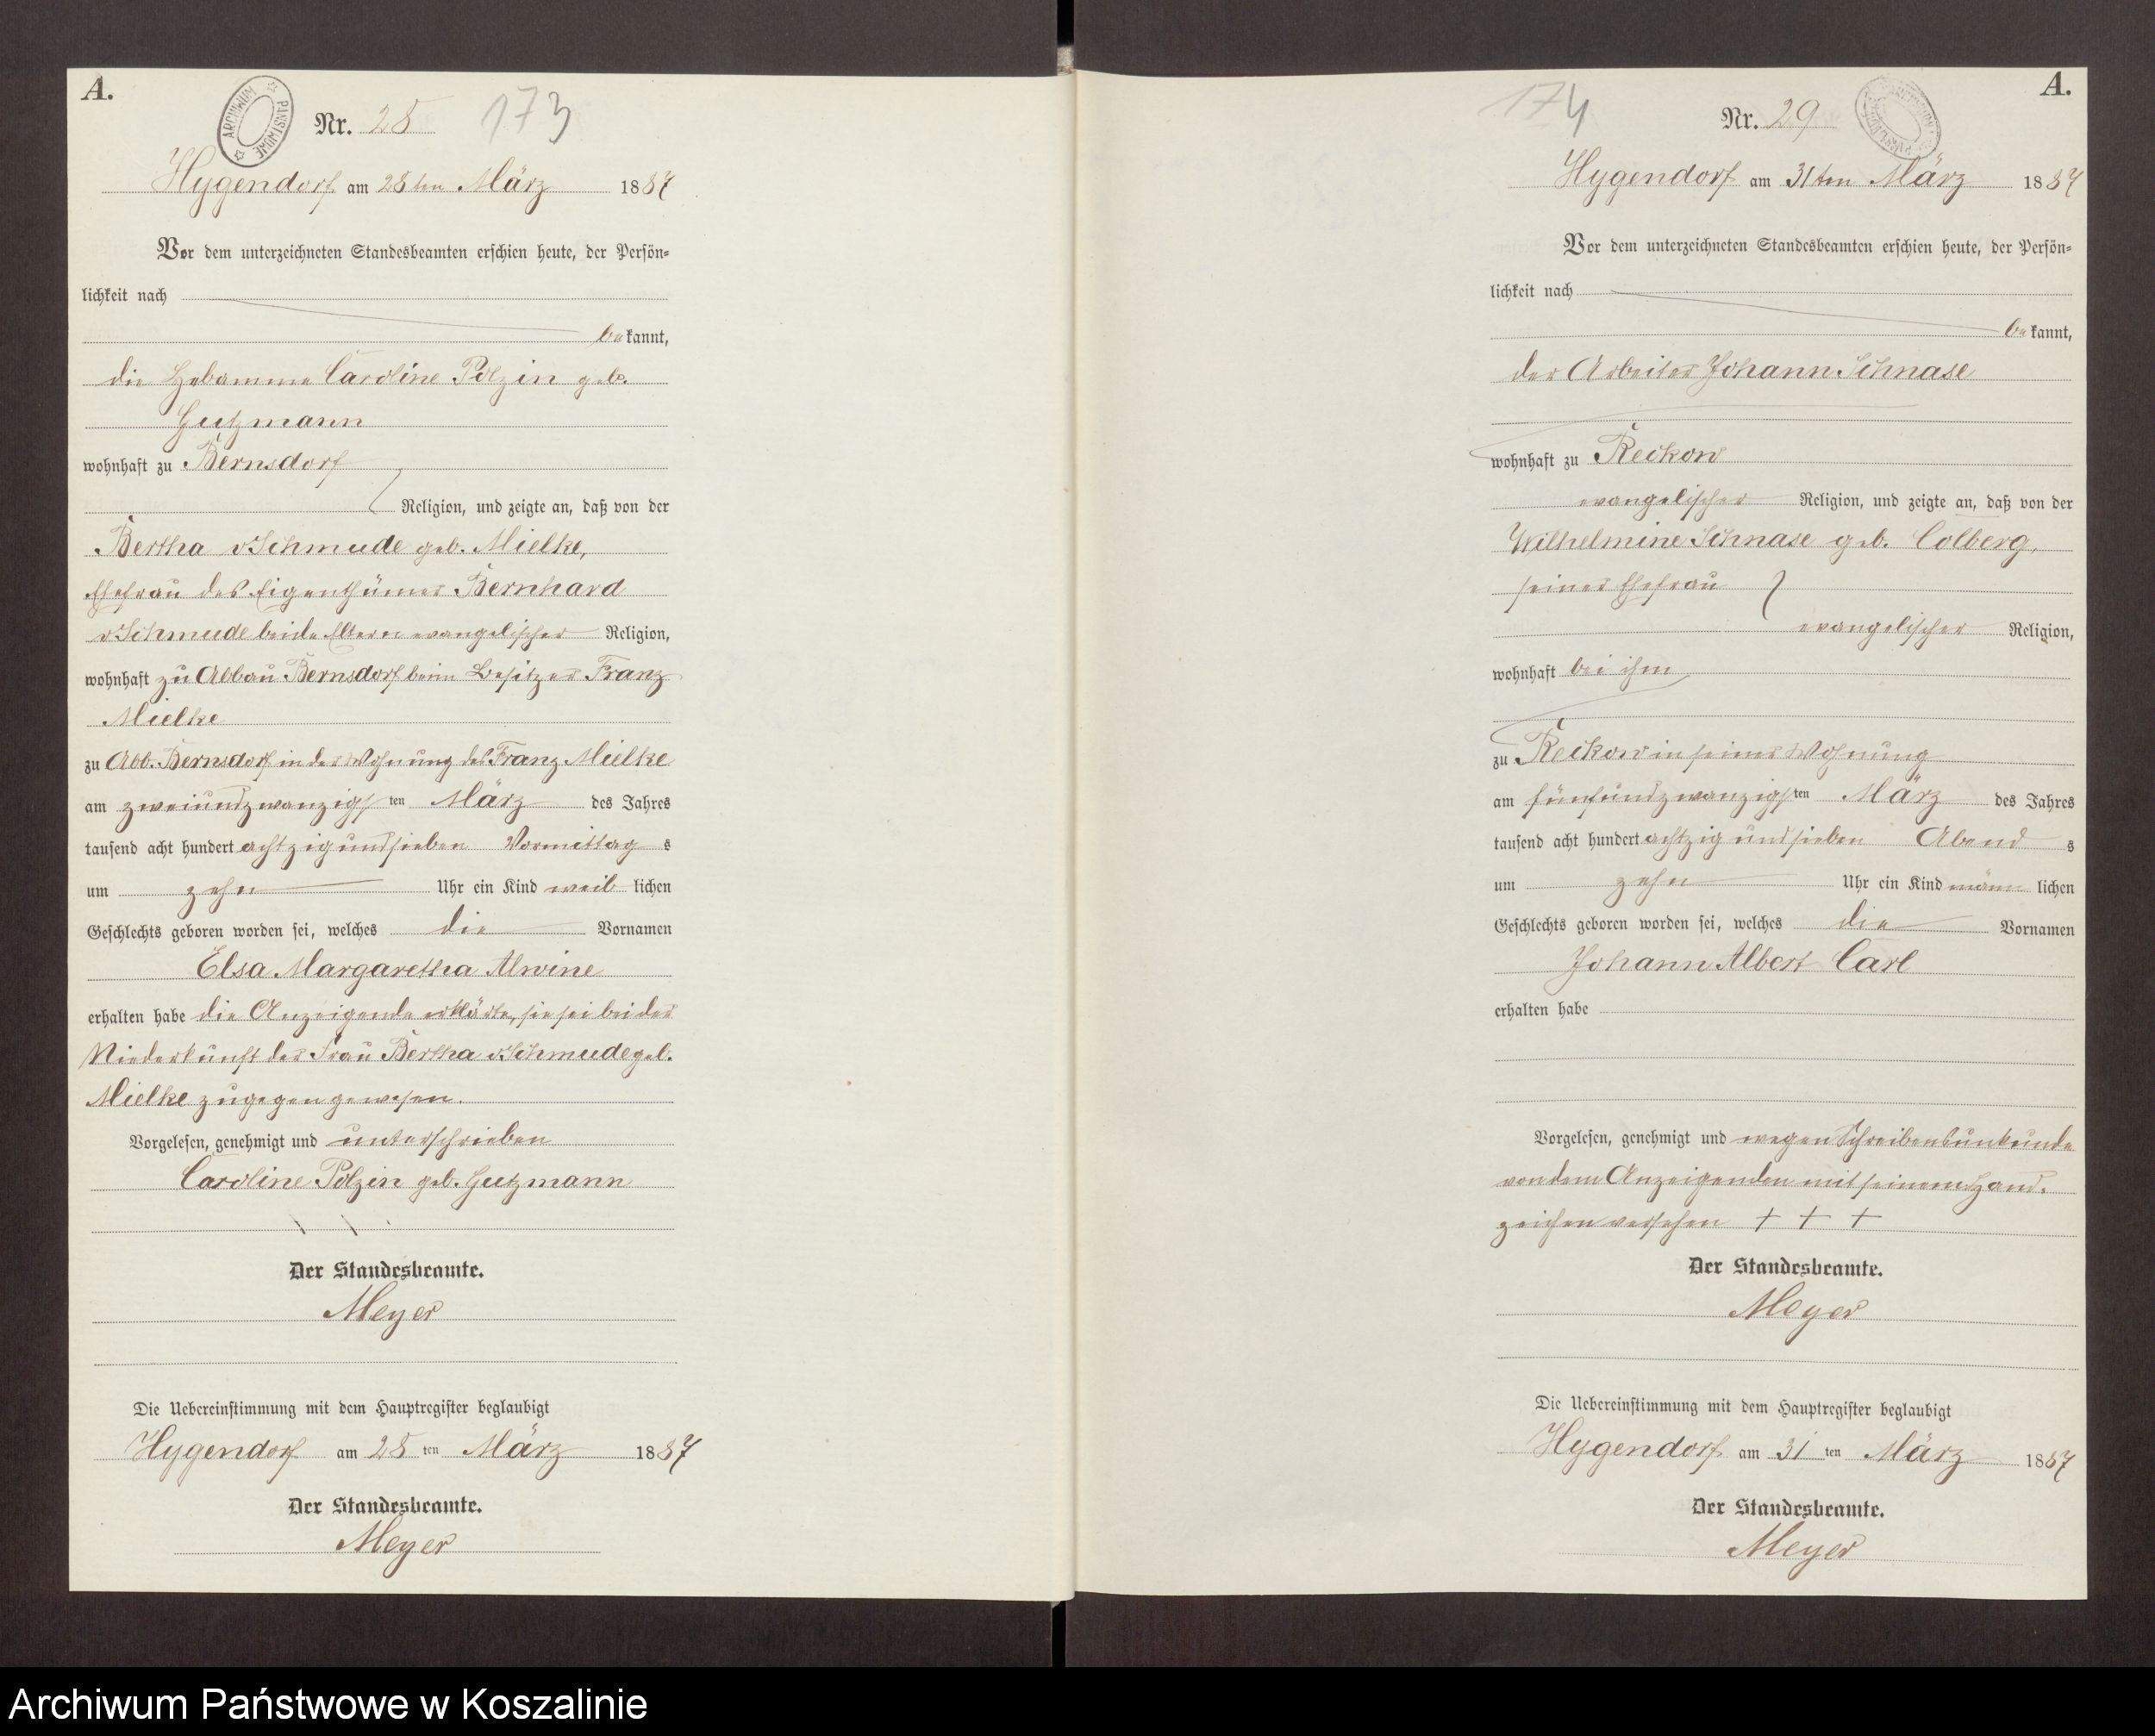 A.
ARCHIWUM PAŃSTWOWE
Nr. 28
173
Hygendorf am 28ten März 1887
Vor dem unterzeichneten Standesbeamten erschien heute, der Persön-
lichkeit nach
bekannt,
die Hebamme Caroline Polzin geb.
Gutzmann
wohnhaft zu Bernsdorf
Religion, und zeigte an, daß von der
Bertha v Schmude geb. Mielke,
Ehefrau des Eigenthümer Bernhard
v Schmude beide Eltern evangelischer Religion,
wohnhaft zu Abbau Bernsdorf beim Besitzer Franz
Mielke
zu Abb. Bernsdorf in der Wohnung des Franz Mielke
am zweiundzwanzigsten März des Jahres
tausend acht hundert achtzig und sieben Vormittags
um zehn Uhr ein Kind weiblichen
Geschlechts geboren worden sei, welches die Vornamen
Elsa Margaretha Alwine
erhalten habe die Anzeigende erklärte, sie sei bei der
Niederkunft der Frau Bertha v Schmude geb.
Mielke zugegen gewesen.
Vorgelesen, genehmigt und unterschrieben
Caroline Polzin geb. Gutzmann
Der Standesbeamte.
Meyer
Die Uebereinstimmung mit dem Hauptregister beglaubigt
Hygendorf am 28ten März 1887
Der Standesbeamte.
Meyer
174
A.
Nr. 29
Hygendorf am 31ten März 1887
Vor dem unterzeichneten Standesbeamten erschien heute, der Persön-
lichkeit nach
bekannt,
der Arbeiter Johann Schnase
wohnhaft zu Reckow
evangelischer Religion, und zeigte an, daß von der
Wilhelmine Schnase geb. Colberg,
seiner Ehefrau
evangelischer Religion,
wohnhaft bei ihm
zu Reckow in seiner Wohnung
am fünfundzwanzigsten März des Jahres
tausend acht hundert achtzig und sieben Abends
um zehn Uhr ein Kind männlichen
Geschlechts geboren worden sei, welches die Vornamen
Johann Albert Carl
erhalten habe
Vorgelesen, genehmigt und wegen Schreibensunkunde
von dem Anzeigenden mit seinem Hand-
zeichen versehen + + +
Der Standesbeamte.
Meyer
Die Uebereinstimmung mit dem Hauptregister beglaubigt
Hygendorf am 31ten März 1887
Der Standesbeamte.
Meyer
Archiwum Państwowe w Koszalinie